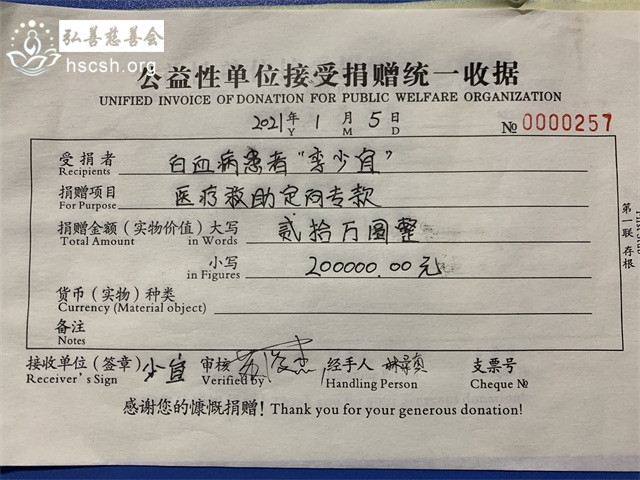 弘善慈善会
hscsh.org
公益性单位接受捐赠统一收据
UNIFIED INVOICE OF DONATION FOR PUBLIC WELFARE ORGANIZATION
2021年 1 月 5 日
Y M D
№ 0000257
受捐者 白血病患者“李少宜”
Recipients
捐赠项目 医疗救助定向专款
For Purpose
捐赠金额（实物价值）大写 贰拾万圆整
Total Amount in Words
小写 200000.00元
in Figures
货币（实物）种类
Currency (Material object)
备注
Notes
第一联 存根
接收单位（签章） 少宜 审核 经手人 支票号
Receiver's Sign Verified by Handling Person Cheque №
感谢您的慷慨捐赠！Thank you for your generous donation!